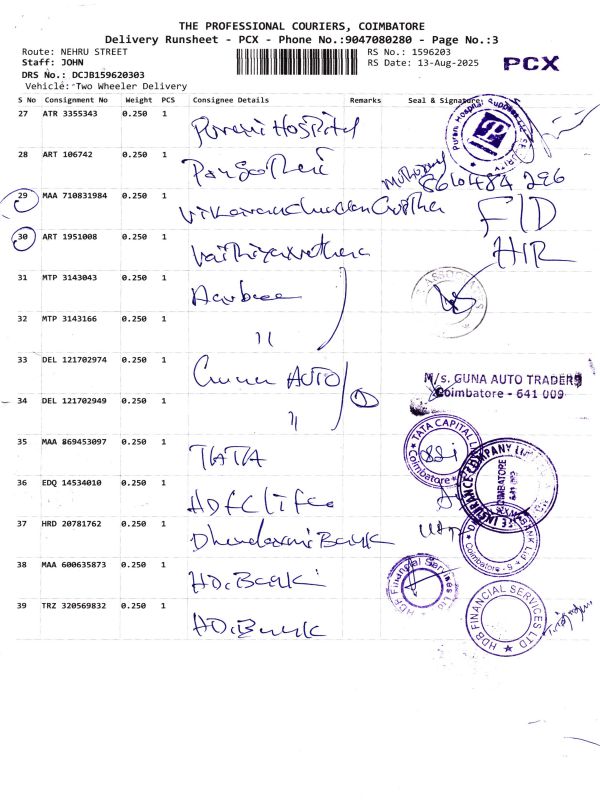 THE PROFESSIONAL COURIERS, COIMBATORE
Delivery Runsheet - PCX - Phone No.:9047080280 - Page No.:3
Route: NEHRU STREET
RS No.: 1596203
Staff: JOHN
RS Date: 13-Aug-2025
PCX
DRS No.: DCJB159620303
Vehicle: Two Wheeler Delivery
S No Consignment No Weight PCS Consignee Details Remarks Seal & Signature
27 ATR 3355343 0.250 1 Purani Hospital
28 ART 106742 0.250 1
8610484 296
29 MAA 710831984 0.250 1 F/D
30 ART 1951008 0.250 1 H/R
31 MTP 3143043 0.250 1
32 MTP 3143166 0.250 1 "
33 DEL 121702974 0.250 1 Guna AUTO
M/s. GUNA AUTO TRADERS
Coimbatore - 641 009
34 DEL 121702949 0.250 1 "
35 MAA 869453097 0.250 1 TATA
TATA CAPITAL
Coimbatore
36 EDQ 14534010 0.250 1 HDFC life
INSURANCE COMPANY
COIMBATORE
37 HRD 20781762 0.250 1 Dhanlaxmi Bank
BANK Ltd
Coimbatore
38 MAA 600635873 0.250 1 HD.Bank
HDF Financial Services Ltd
39 TRZ 320569832 0.250 1 HD.Bank
HDB FINANCIAL SERVICES LTD